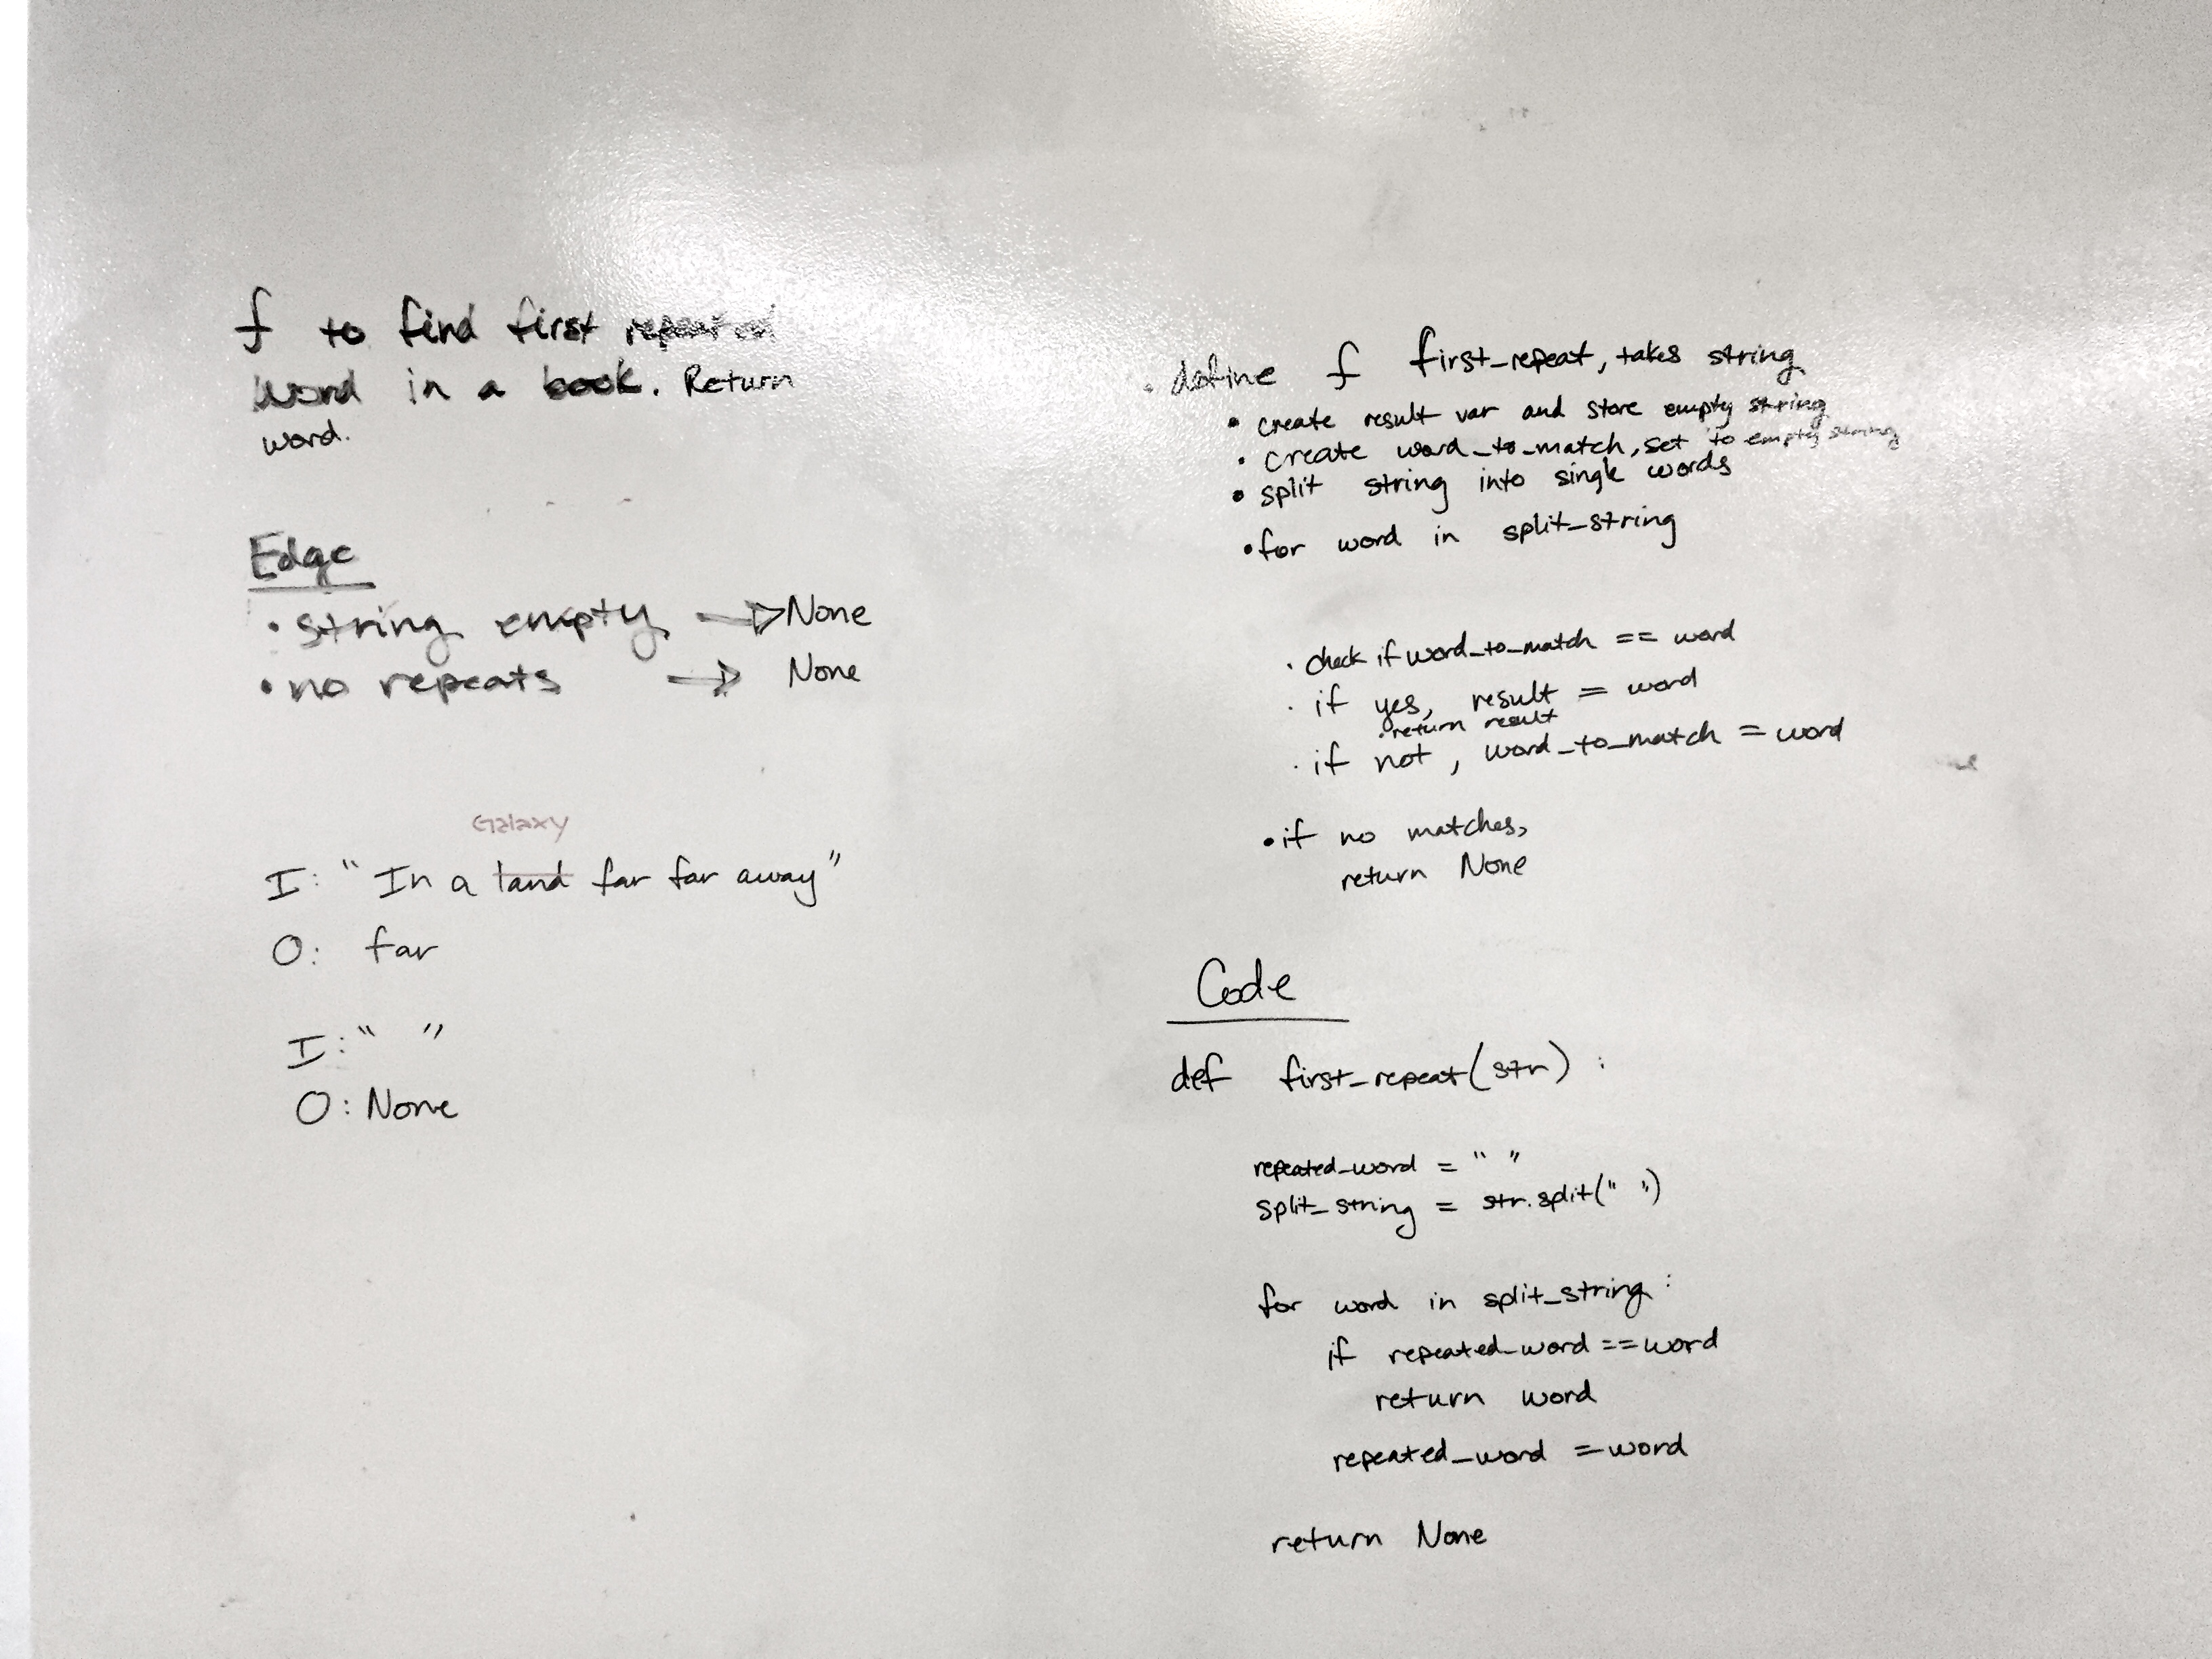 f to find first repeated
word in a book. Return
word.
Edge
• string empty → None
• no repeats → None
Galaxy
I: "In a land far far away"
O: far
I: " "
O: None
• define f first_repeat, takes string
• create result var and store empty string
• create word_to_match, set to empty string
• split string into single words
• for word in split_string
• check if word_to_match == word
• if yes, result = word
• return result
• if not, word_to_match = word
• if no matches,
return None
Code
def first_repeat(str):
repeated_word = " "
split_string = str.split(" ")
for word in split_string:
if repeated_word == word
return word
repeated_word = word
return None